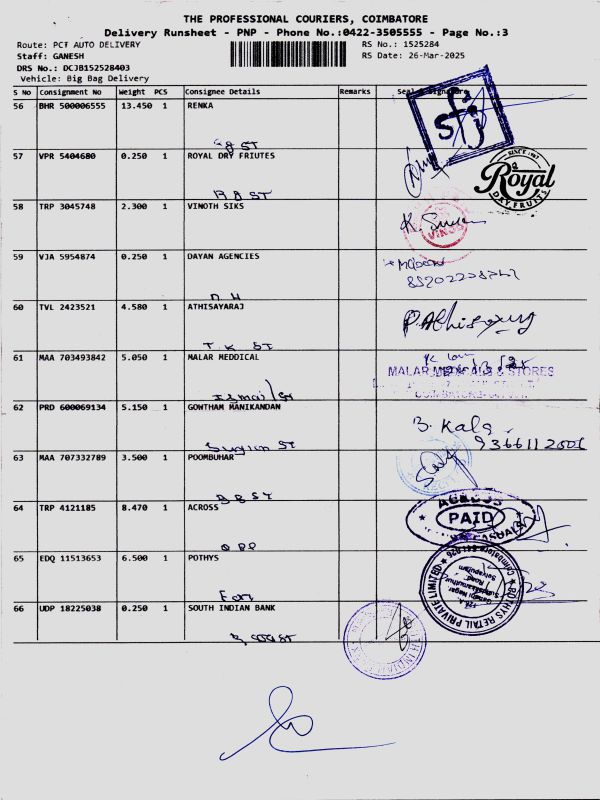 THE PROFESSIONAL COURIERS, COIMBATORE
Delivery Runsheet - PNP - Phone No.:0422-3505555 - Page No.:3
Route: PCT AUTO DELIVERY
RS No.: 1525284
Staff: GANESH
RS Date: 26-Mar-2025
DRS No.: DCJB152528403
Vehicle: Big Bag Delivery
S No Consignment No Weight PCS Consignee Details Remarks Seal & Signature
56 BHR 500006555 13.450 1 RENKA
57 VPR 5404680 0.250 1 ROYAL DRY FRIUTES
SINCE 1987
Royal
DRY FRUITS
R B ST
58 TRP 3045748 2.300 1 VINOTH SIKS
59 VJA 5954874 0.250 1 DAYAN AGENCIES
60 TVL 2423521 4.580 1 ATHISAYARAJ
P. Athisayaraj
T K ST
61 MAA 703493842 5.050 1 MALAR MEDDICAL
MALAR MEDICALS & STORES
62 PRD 600069134 5.150 1 GOWTHAM MANIKANDAN
B. Kala
63 MAA 707332789 3.500 1 POOMBUHAR
B B ST
64 TRP 4121185 8.470 1 ACROSS
ACROSS
PAID
CASUALS
65 EDQ 11513653 6.500 1 POTHYS
POTHYS RETAIL PRIVATE LIMITED
66 UDP 18225038 0.250 1 SOUTH INDIAN BANK